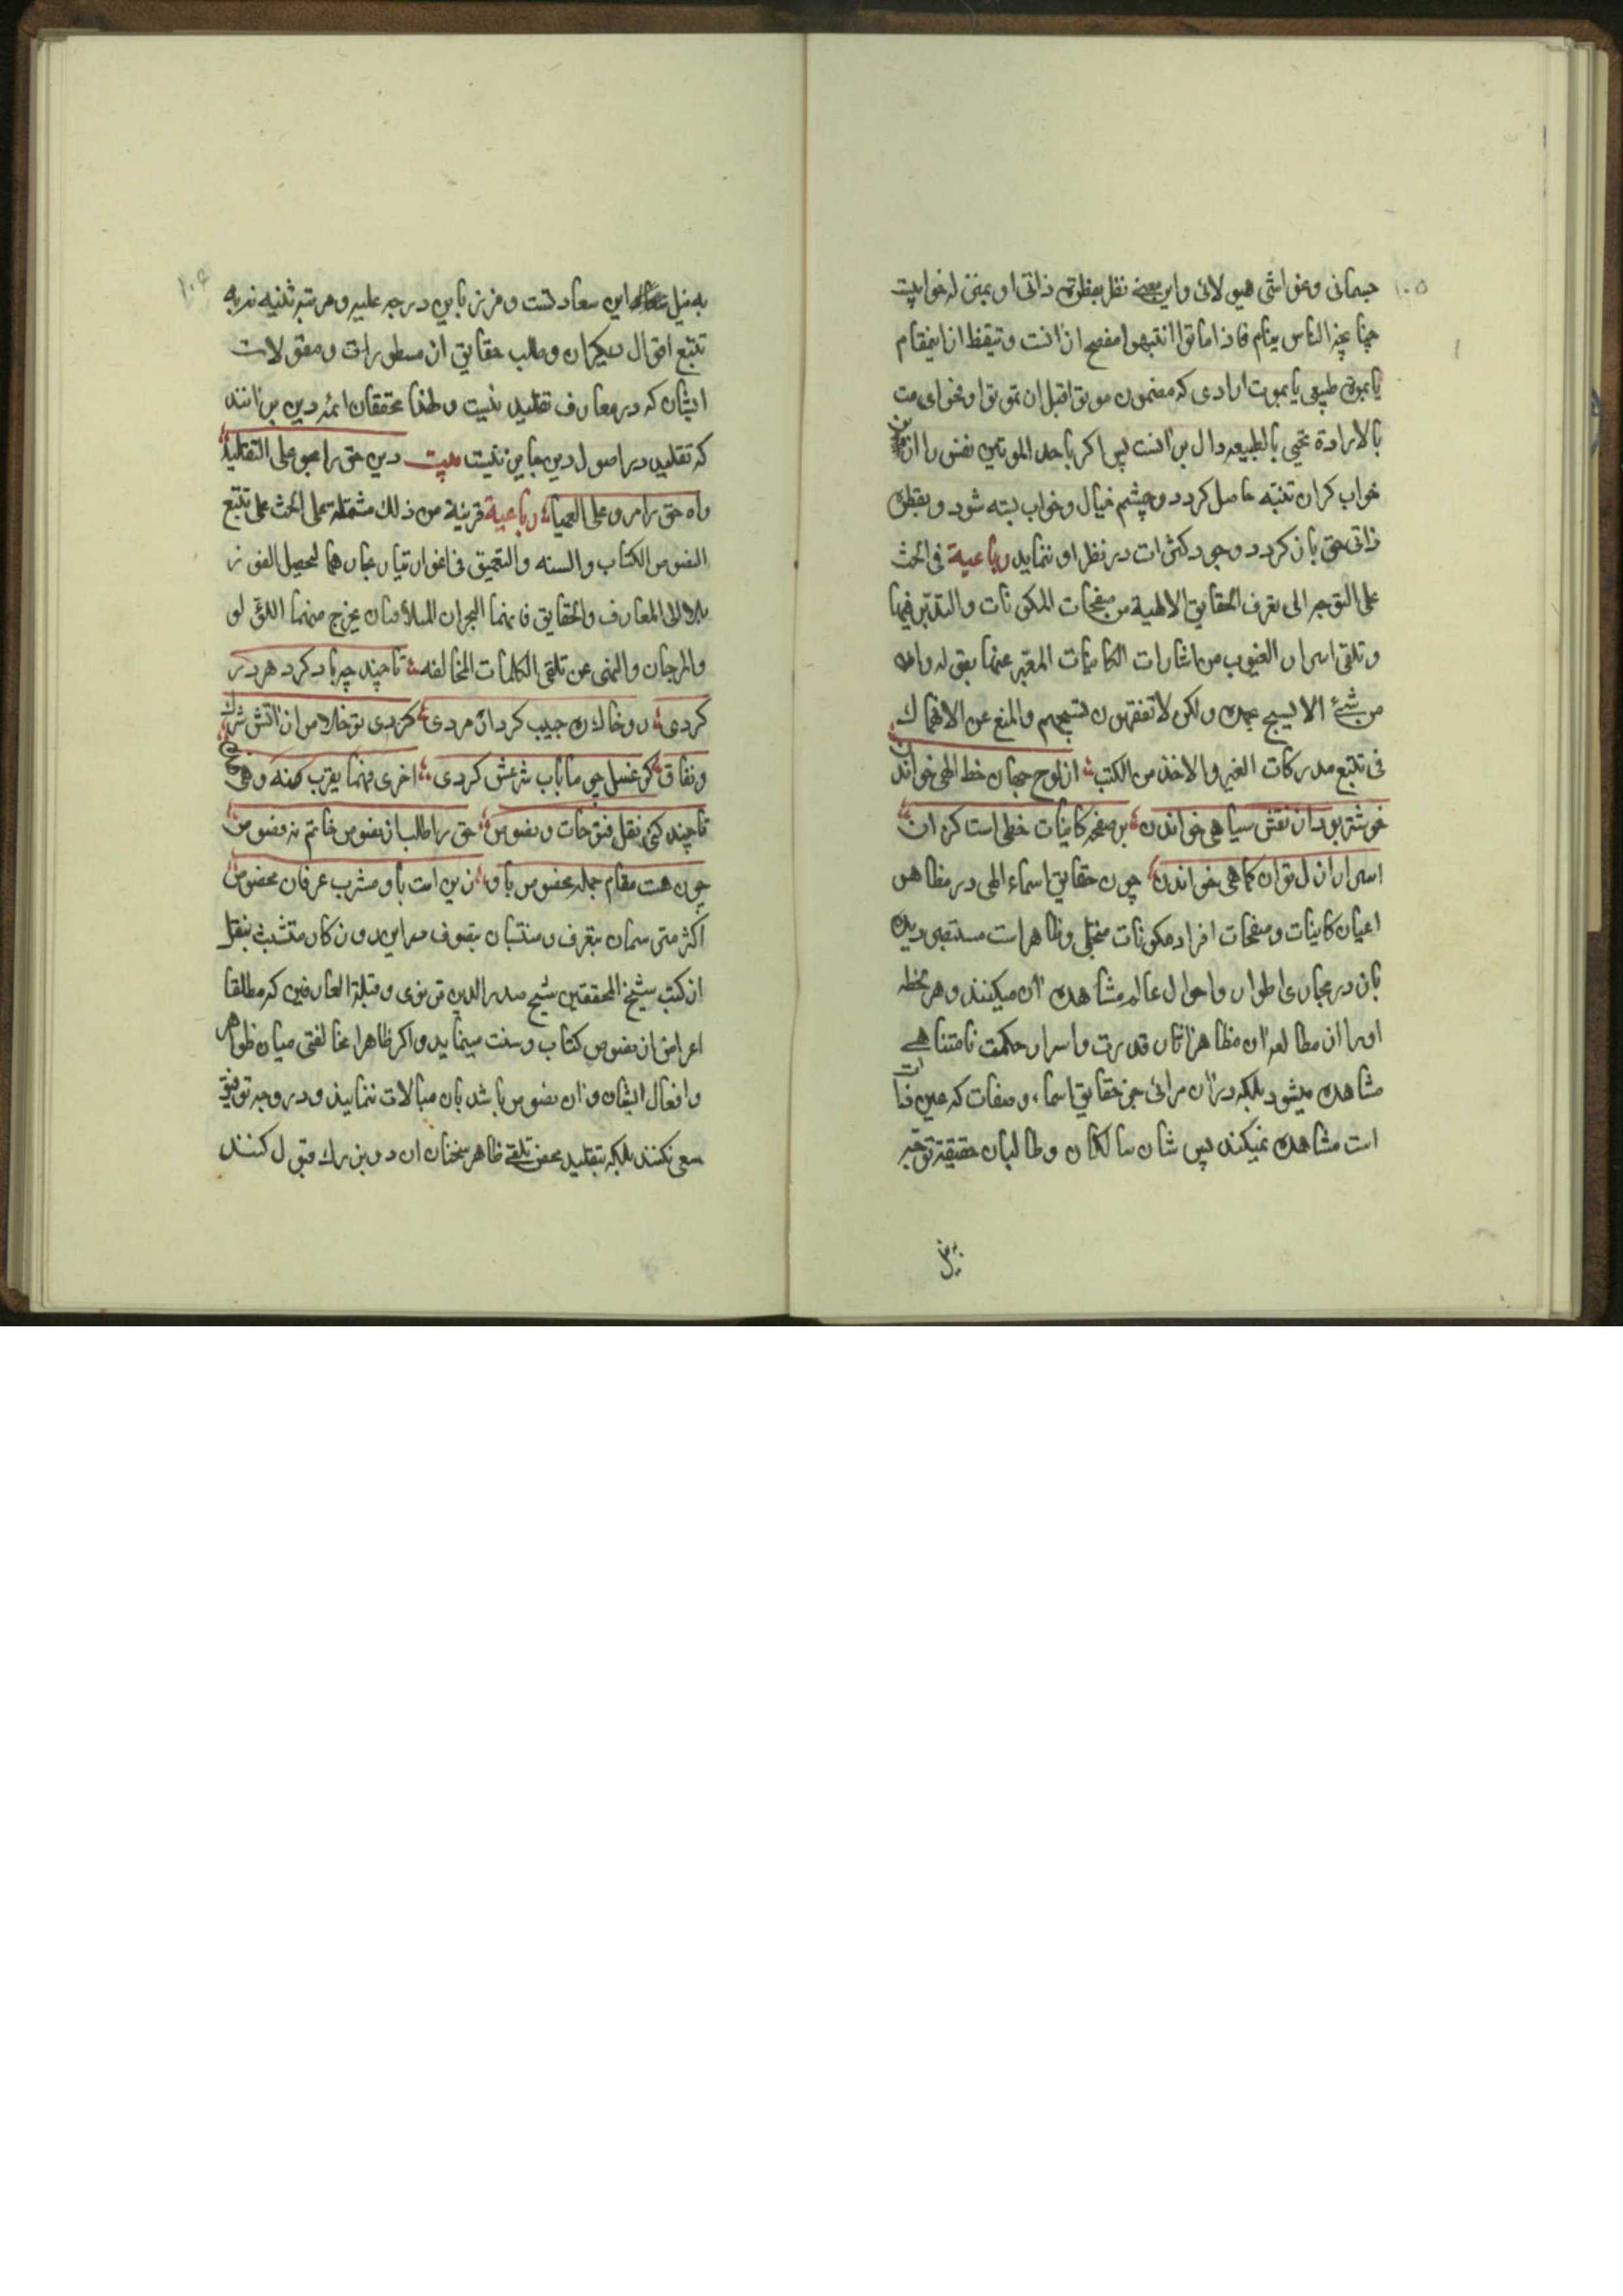 ۱۰۵
جسمانی و غواشی هیولائی و این معنی نظر بیقظۀ ذاتی او بمنزله خوابیست
چنانچه الناس نیام فاذا ماتوا انتبهوا مفصح از انست و تیقظ از اینمقام
یا بموت طبیعی یا بموت ارادی که مضمون موتوا قبل ان تموتوا و فحوای مت
بالارادة تحیی بالطبیعه دال بر انست پس اکر باحد الموتین نفس را از
خواب کران تنبه حاصل کردد و چشم خیال و خواب بسته شود و یقظۀ
ذاتی حق باز کردد وجود کثرات در نظر او ننماید رباعیة فی الحث
علی التوجه الی تعرف الحقایق الالهیة من صفحات المکونات والتدبر فیها
و تلقی اسرار الغیوب من اشارات الکاینات المعبر عنها بقوله وان
من شئ الا یسبح بحمده ولکن لا تفقهون تسبیحهم والمنع عن الانهماک
فی تتبع مدرکات الغیر والاخذ من الکتب از لوح جهان خط الهی خواندن
خوشتر بود از نقش سیاهی خواندن بر صفحه کاینات خطی است کز ان
اسرار ازل توان کماهی خواندن چون حقایق اسماء الهی در مظاهر
اعیان کاینات و صفحات افراد مکونات متجلی و ظاهر است مستبصر دیده
باز در مجاری اطوار و احوال عالم مشاهده آن میکنند و هر لحظه
او را از مطالعه آن مظاهر اثار قدرت و اسرار حکمت نامتناهی
مشاهده میشود بلکه در آن مرائی جز حقایق اسماء و صفات که عین ذات
است مشاهده نمیکند پس شان سالکان و طالبان حقیقة توجه
به نیل این سعادتست و فوز باین درجه علیه و مرتبه ثنیه نه به
تتبع اقوال دیکران و طلب حقایق از مسطورات و مقولات
ایشان که در معارف تقلید نیست و لهذا محققان ائمه دین برانند
که تقلید در اصول دین جایز نیست بیت دین حق را مجو علی التقلید
راه حق را مرو علی العمیا رباعیة قرینة من ذلک مشتملة علی الحث علی تتبع
النصوص الکتاب والسنه والتعمیق فی اغوار تیار بحارهما لتحصیل الفوز
بلالی المعارف والحقایق فانهما البحران اللذان یخرج منهما اللؤلؤ
والمرجان والنهی عن تلقی الکلمات المخالفه تا چند چو باد کرد هر در
کردی رو خاک ره حبیب کرد ار مردی کردی تو خلاص از اتش شرک
و نفاق کر غسل چو ما باب شرعش کردی اخری فیما یقرب منه و هی
تا چند کنی نقل فتوحات و نصوص حق را طلب از نصوص خاتم نه فصوص
چون هست مقام جمله مخصوص باو زین است باو مشرب عرفان مخصوص
اکثر متوسمان بتعرف و منتسبان بتصوف در این روزکار متشبث بنقل
از کتب شیخ المحققین شیخ صدر الدین قونوی و قبلة العارفین که مطالقا
اعراض از نصوص کتاب و سنت مینماید و اکر ظاهرا مخالفتی میان ظواهر
و افعال ایشان و ان نصوص باشد بان مبالات ننمایند و در وجه توفیق
سعی نکنند بلکه بتقلید محض تلقی ظاهر سخنان ان دو بزرک قبول کنند